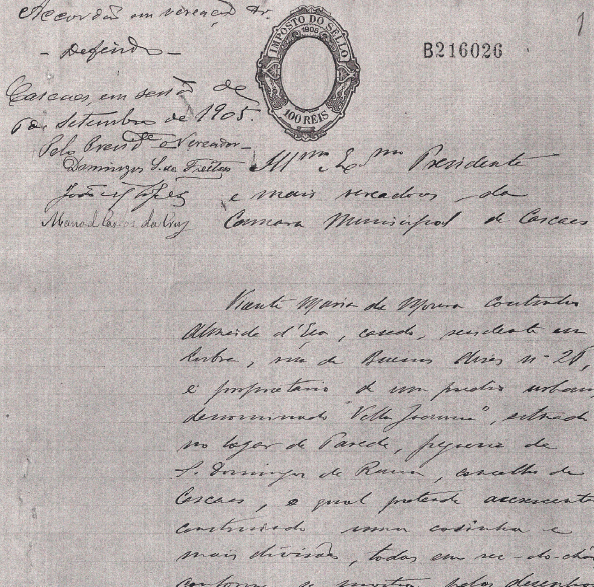 Accordão em vereação de
- Deferido -
Cascaes, em sessão de
6 de Setembro de 1905.
Pelo Presid.e o Vereador
Domingos S. de Freitas
João Lopes
Manoel Carlos da Cruz
IMPOSTO DO SELLO
1905
100 RÉIS
B216026
1
Ill.mo Ex.mo Presidente
e mais vereadores da
Camara Municipal de Cascaes
Vicente Maria de Moura Coutinho
Almeida d'Eça, casado, residente em
Lisboa, rua de Buenos Aires nº 28,
é proprietario de um predio urbano,
denominado "Villa Joanna", situado
no logar de Parede, freguesia de
S. Domingos de Rana, concelho de
Cascaes, o qual pretende accrescentar
construindo uma cosinha e
mais divisões, todas em rez-do-chão
conforme se mostra pelos desenhos